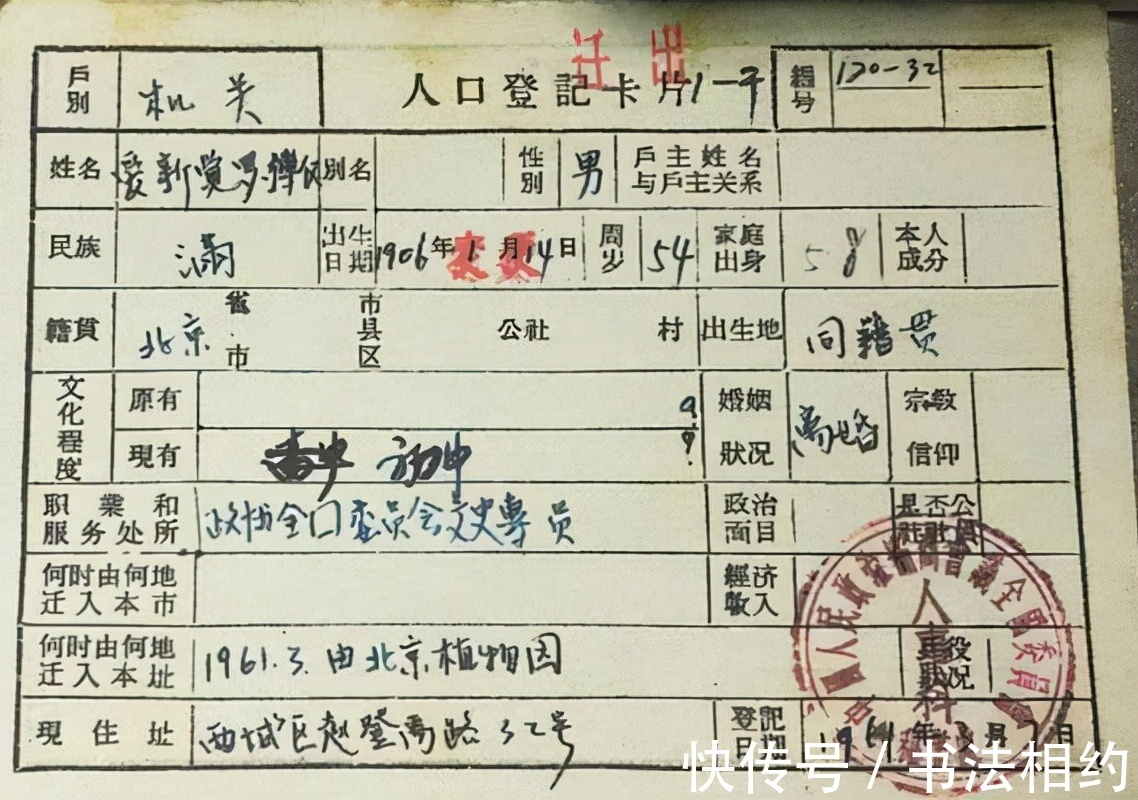 迁出
戶別 机关 人口登記卡片 编号 120-32
姓名 爱新觉罗· 别名 性別 男 戶主姓名与戶主关系
民族 满 出生日期 1906年1月14日 周岁 54 家庭出身 本人成分
籍貫 北京 省市 市县区 公社 村 出生地 同籍贯
文化程度 原有 婚姻狀况 离婚 宗教信仰
現有 初中
职業和服务处所 政协全口委员会文史專员 政治面目 是否公社社員
何时由何地迁入本市 經济收入
何时由何地迁入本址 1961.3.由北京植物园 兵役狀况
現住址 西城区赵登禹路32号 登記日期 1961年3月7日
人民政治協商會議全國委員會
人事科
快传号 / 书法相约